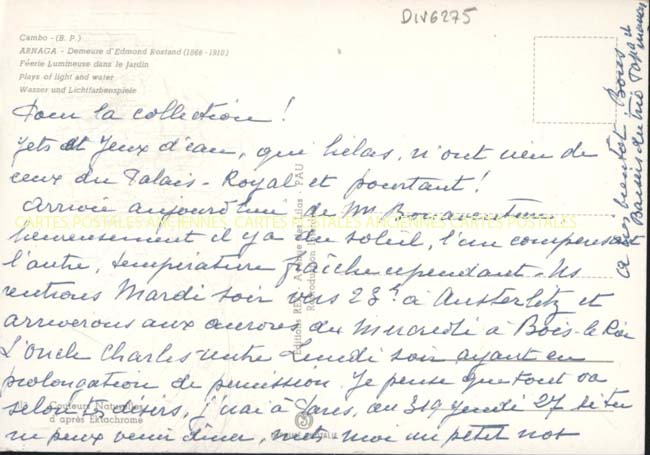 DIV6275
Cambo - (B. P.)
ARNAGA - Demeure d'Edmond Rostand (1868-1918)
Féerie Lumineuse dans le Jardin
Plays of light and water
Wasser und Lichtfarbenspiele
Pour la collection !
Jets et Jeux d'eau, qui hélas, n'ont rien de
ceux du Palais-Royal et pourtant !
Arrivée aujourd'hui de M Bonaventure
heureusement il y a du soleil, l'un compensant
l'autre, température fraîche cependant - Ns
rentrons Mardi soir vers 23h à Austerlitz et
arriverons aux aurores du Mercredi à Bois-le-Roi
L'oncle Charles rentre Lundi soir ayant eu
prolongation de permission. Je pense que tout va
selon tes désirs, j'irai à Paris, au 319 Jeudi 27 si tu
ne peux venir dîner, mets moi un petit mot
à très bientôt Bons
Baisers de
CARTES POSTALES ANCIENNES, CARTES POSTALES ANCIENNES, CARTES POSTALES
Editions REX - Lilas - PAU
Couleurs Naturelles
d'après Ektachrome